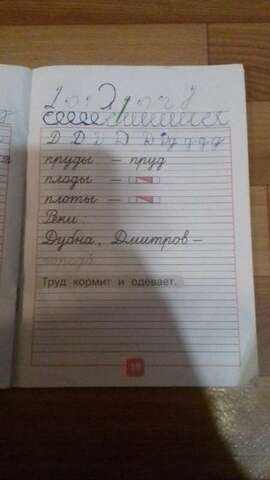 Д Д Д Д Д д д д д
пруды – пруд
плоды –
плоты –
Реки:
Дубна, Дмитров –
города
Труд кормит и одевает.
19